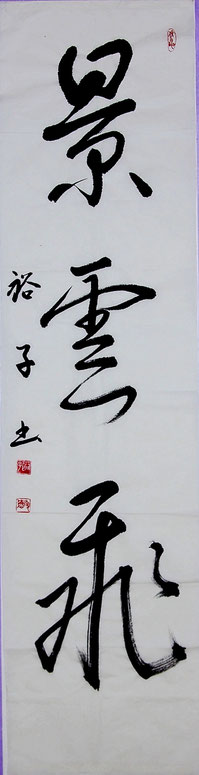 景雲飛
裕子书